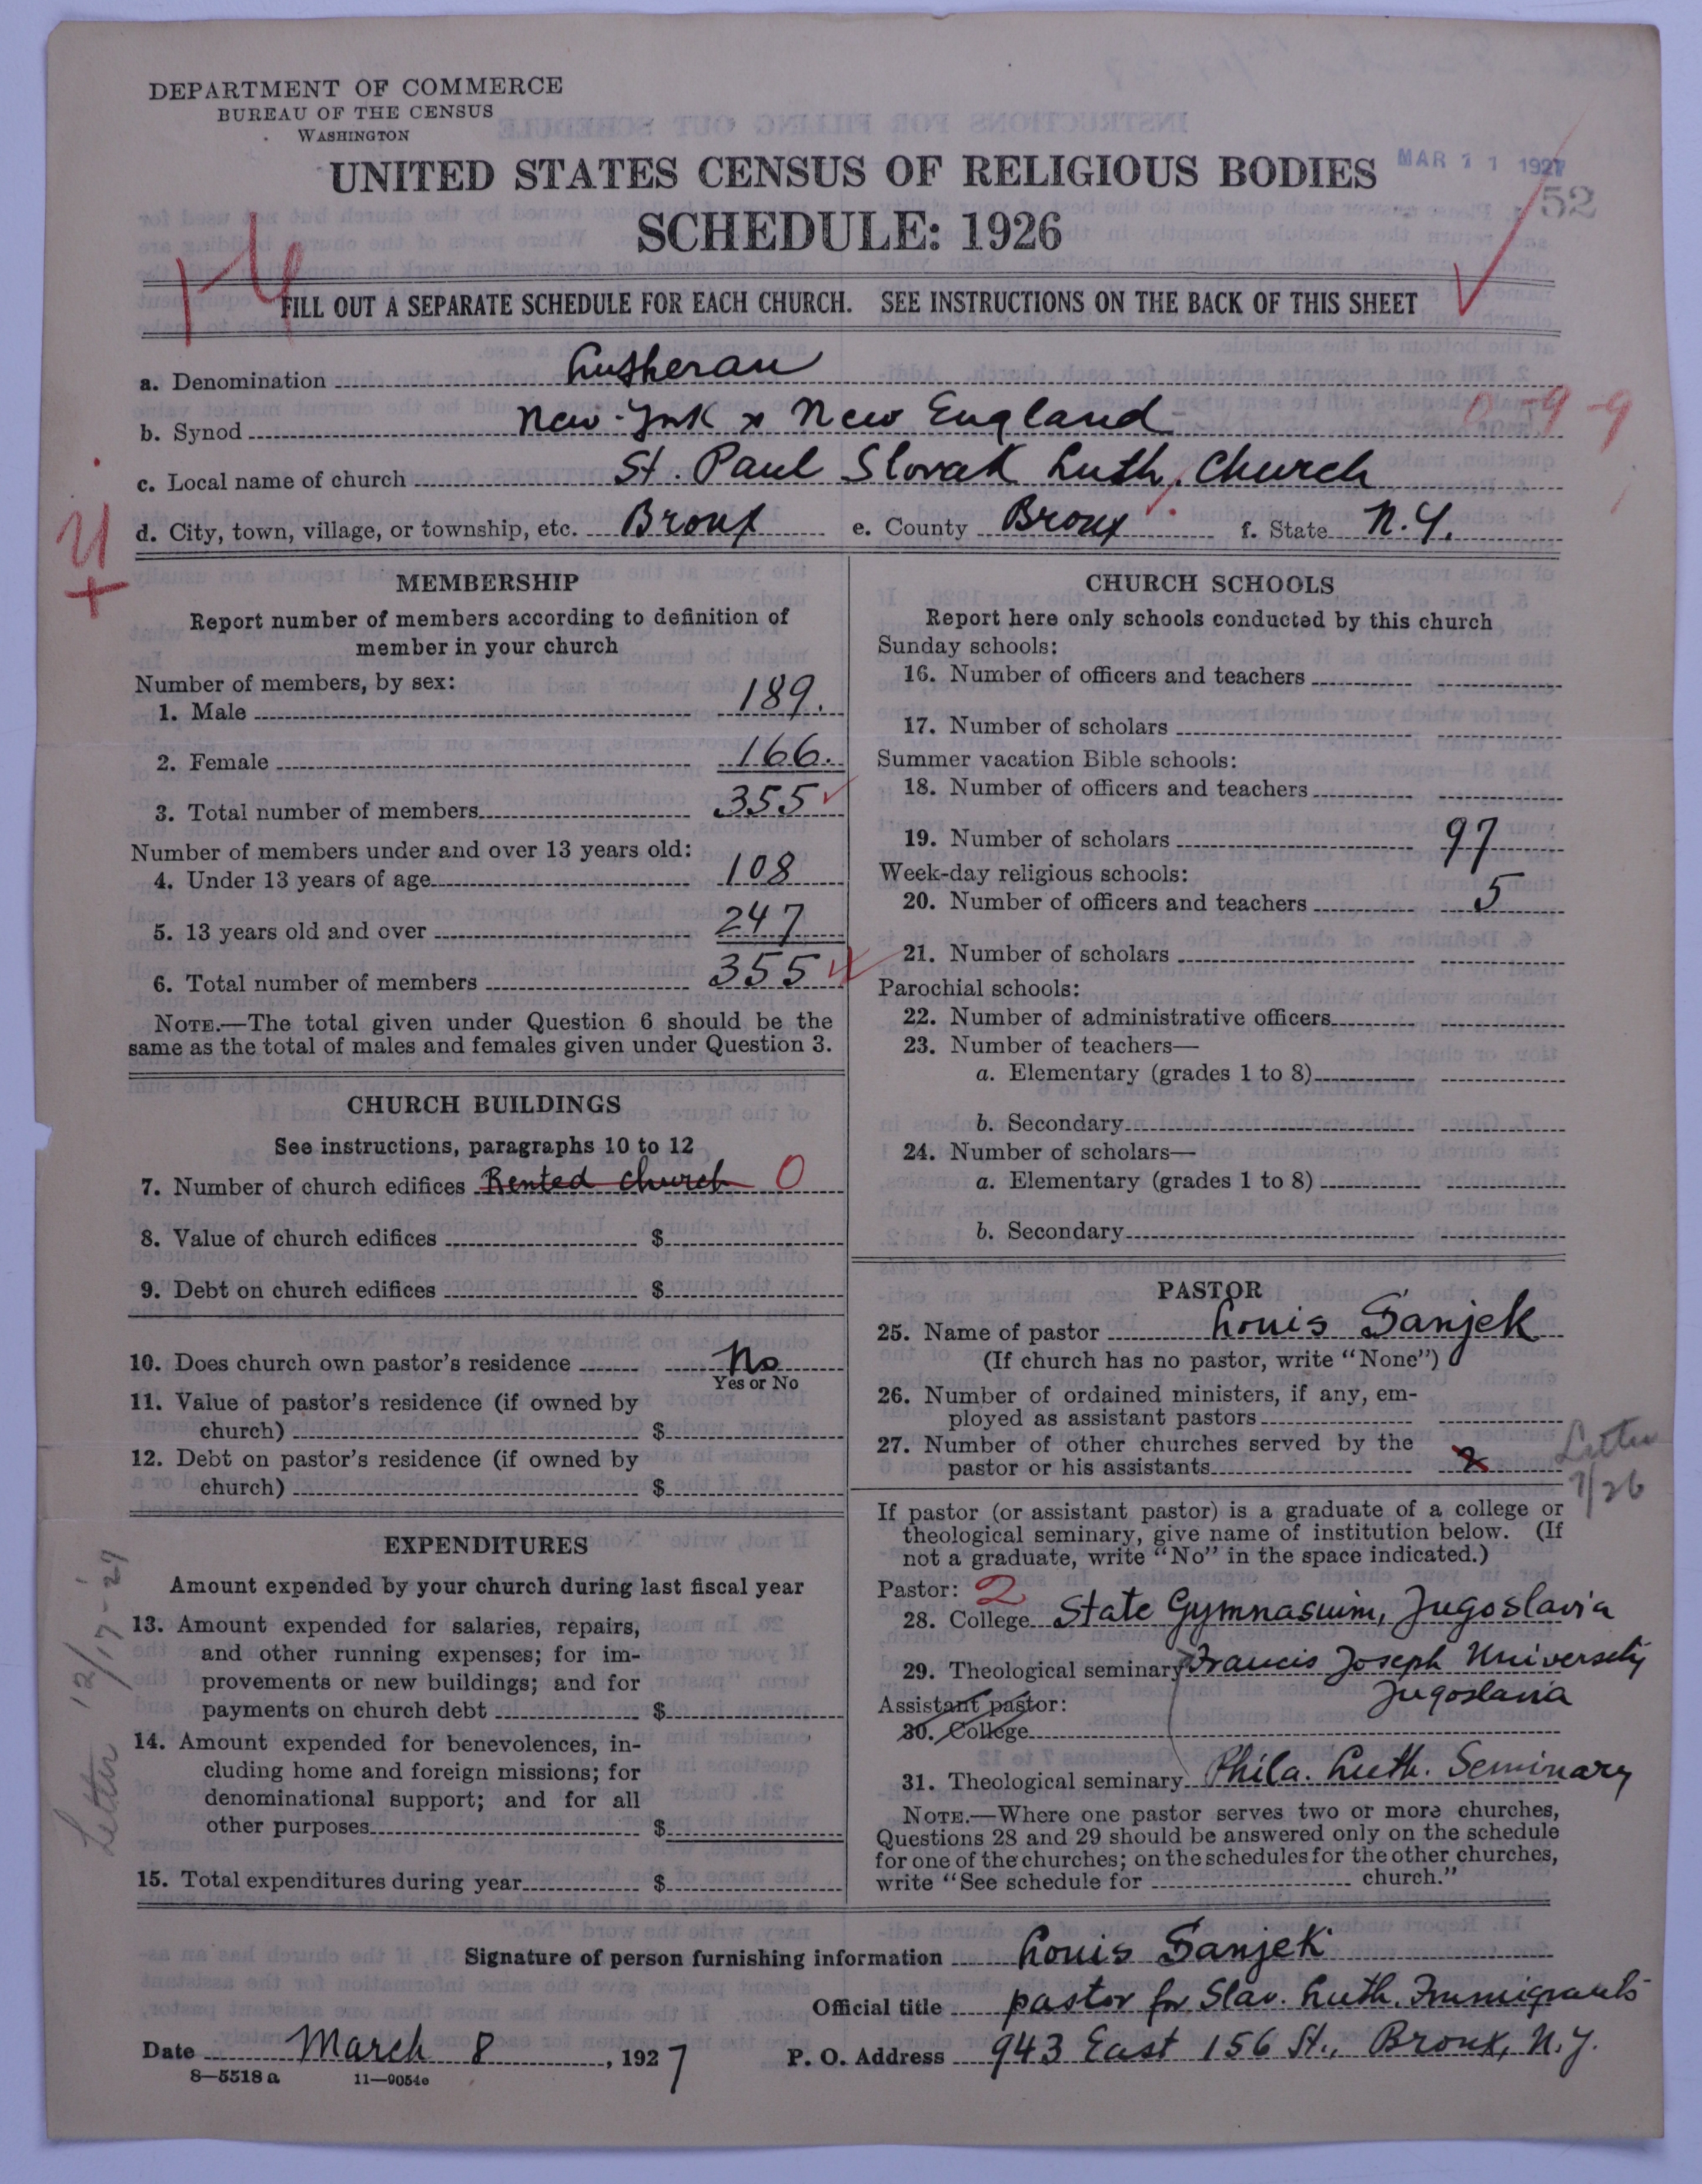 DEPARTMENT OF COMMERCE
BUREAU OF THE CENSUS
WASHINGTON
UNITED STATES CENSUS OF RELIGIOUS BODIES
MAR 11 1927
52
SCHEDULE: 1926
FILL OUT A SEPARATE SCHEDULE FOR EACH CHURCH. SEE INSTRUCTIONS ON THE BACK OF THIS SHEET
a. Denomination Lutheran
b. Synod New-York & New England
0-9-9
c. Local name of church St. Paul Slovak Luth. Church
d. City, town, village, or township, etc. Bronx e. County Bronx f. State N.Y.
MEMBERSHIP
Report number of members according to definition of
member in your church
Number of members, by sex:
1. Male 189.
2. Female 166.
3. Total number of members 355
Number of members under and over 13 years old:
4. Under 13 years of age 108
5. 13 years old and over 247
6. Total number of members 355
NOTE.—The total given under Question 6 should be the
same as the total of males and females given under Question 3.
CHURCH BUILDINGS
See instructions, paragraphs 10 to 12
7. Number of church edifices Rented church 0
8. Value of church edifices $
9. Debt on church edifices $
10. Does church own pastor's residence No
Yes or No
11. Value of pastor's residence (if owned by
church) $
12. Debt on pastor's residence (if owned by
church) $
EXPENDITURES
Amount expended by your church during last fiscal year
13. Amount expended for salaries, repairs,
and other running expenses; for im-
provements or new buildings; and for
payments on church debt $
14. Amount expended for benevolences, in-
cluding home and foreign missions; for
denominational support; and for all
other purposes $
15. Total expenditures during year $
Letter 12/17-27
CHURCH SCHOOLS
Report here only schools conducted by this church
Sunday schools:
16. Number of officers and teachers
17. Number of scholars
Summer vacation Bible schools:
18. Number of officers and teachers
19. Number of scholars 97
Week-day religious schools:
20. Number of officers and teachers 5
21. Number of scholars
Parochial schools:
22. Number of administrative officers
23. Number of teachers—
a. Elementary (grades 1 to 8)
b. Secondary
24. Number of scholars—
a. Elementary (grades 1 to 8)
b. Secondary
PASTOR
25. Name of pastor Louis Sanjek
(If church has no pastor, write "None")
26. Number of ordained ministers, if any, em-
ployed as assistant pastors
27. Number of other churches served by the
pastor or his assistants 2
Letter
1/26
If pastor (or assistant pastor) is a graduate of a college or
theological seminary, give name of institution below. (If
not a graduate, write "No" in the space indicated.)
Pastor: 2
28. College State Gymnasium, Jugoslavia
29. Theological seminary Francis Joseph University
Jugoslavia
Assistant pastor:
30. College
31. Theological seminary Phila. Luth. Seminary
NOTE.—Where one pastor serves two or more churches,
Questions 28 and 29 should be answered only on the schedule
for one of the churches; on the schedules for the other churches,
write "See schedule for church."
Signature of person furnishing information Louis Sanjek
Official title pastor for Slav. Luth. Immigrants
Date March 8, 1927 P. O. Address 943 East 156 St., Bronx, N.Y.
8—5518 a 11—9054c